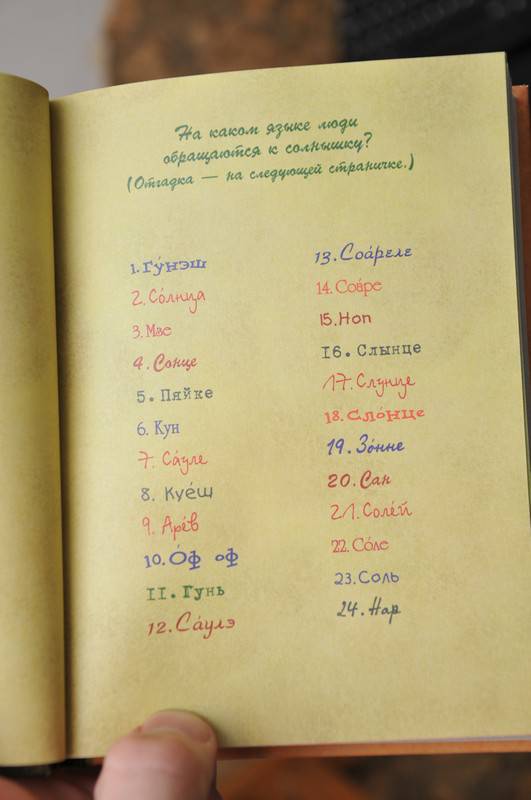 На каком языке люди
обращаются к солнышку?
(Отгадка — на следующей страничке.)
1. Гу́нэш
2. Со́лнца
3. Мзе
4. Сонце
5. Пяйке
6. Кун
7. Са́уле
8. Куе́ш
9. Аре́в
10. О́ф оф
11. Гунь
12. Са́улэ
13. Соа́реле
14. Соаре
15. Ноп
16. Слынце
17. Слунце
18. Сло́нце
19. Зо́нне
20. Сан
21. Соле́й
22. Со́ле
23. Соль
24. Нар